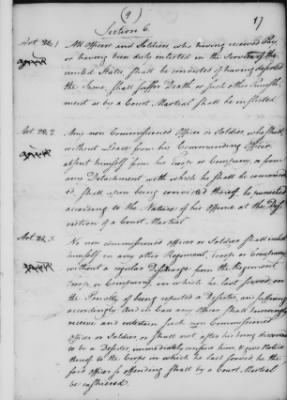 (9)
Section 6.
Art. 22. 1 All Officers and Soldiers who having received Pay
or having been duly enlisted in the Service of the
united States, shall be convicted of having deserted
the same, shall suffer Death or such other Punish
ment as by a Court Martial shall be inflicted.
Art. 22. 2 Any non Commissioned Officer or Soldier who shall
without Leave from his Commanding Officer
absent himself from his Troop or Company, or from
any Detachment with which he shall be command
ed, shall upon being convicted thereof be punished
according to the Nature of his Offence at the Dis
cretion of a Court Martial
Art. 22. 3 No non commissioned officer or Soldier shall inlist
himself in any other Regiment, Troop or Company
without a regular Discharge from the Regiment
Troop or Company, in which he last served, on
the Penalty of being reputed a Deserter, and suffering
accordingly. And in Case any Officer shall knowingly
receive and entertain such non Commissioned
Officer or Soldier, or shall not after his being discovered
to be a Deserter, immediately confine him & give Notice
thereof to the Corps in which he last served he the
said officer so offending shall by a Court Martial
be cashiered.